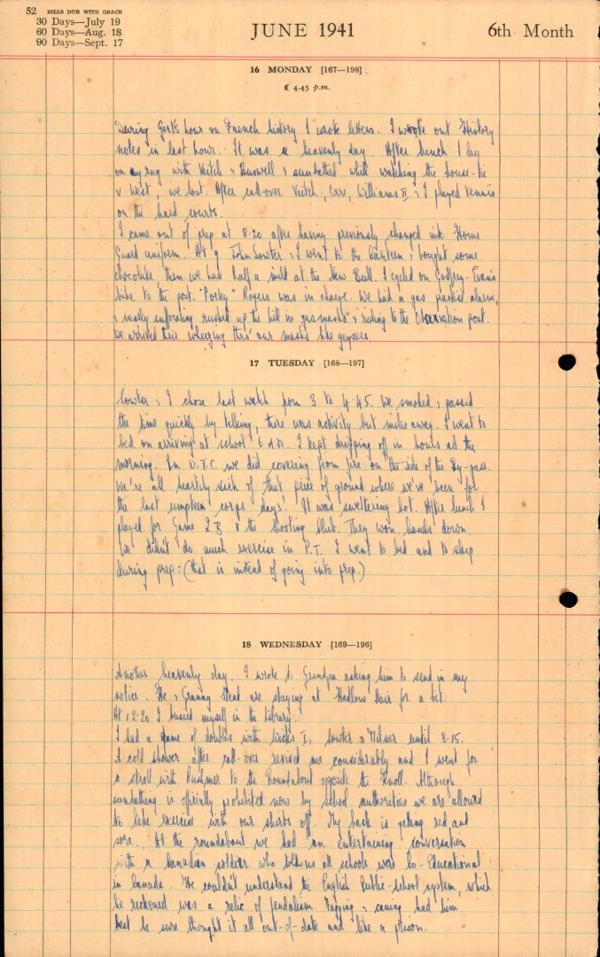 52 BILLS DUE WITH GRACE
30 Days—July 19
60 Days—Aug. 18
90 Days—Sept. 17
JUNE 1941
6th Month
16 MONDAY [167—198]
☾ 4.45 p.m.
During Gert's hour on French history I wrote letters. I wrote out History
notes in last hour. It was a heavenly day. After lunch I lay
on my rug with Veitch & Buswell & sunbathed while watching the house-tie
v West, we lost. After call-over Veitch, Carr, Williams II & I played tennis
on the hard courts.
I came out of prep at 8.20 after having previously changed into Home
Guard uniform. At 9 John Lowter & I went to the Canteen & bought some
chocolate then we had half a mild at the New Bull. I cycled on Godfrey-Evans
bike to the post. "Porky" Rogers was in charge. We had a gas practice alarm,
& really suffocating rushed up the hill in gasmasks & riding to the Observation post.
we arrived there wheezing thro' our masks like geysers
17 TUESDAY [168—197]
Lowter & I chose last watch from 3 to 4.45. We smoked & passed
the time quickly by talking, there was activity but miles away. I went to
bed on arriving at school I kept dropping off in hours all the
morning. In O.T.C. we did covering from fire on the side of the By-pass.
We're all heartily sick of that piece of ground where we've been for
the last umpteen 'corps days'. It was sweltering hot. After lunch I
played for Game 2B v the Shooting They won hands down.
We didn't do much exercise in P.T. I went to bed and to sleep
during prep: (that is instead of going into prep.)
18 WEDNESDAY [169—196]
Another heavenly day. I wrote to Grandpa asking him to send in my
notice. He & Granny Mead are staying at Hadlow Stair for a bit.
At 12.20 I busied myself in the library.
I had a game of doubles with I, Lowter & Milner until 3.15.
A cold shower after call-over revived me considerably and I went for
a stroll with Rushmer to the Roundabout opposite the Knoll. Although
sunbathing is officially prohibited now by school authorities we are allowed
to take exercise with our shirts off. My back is getting red and
sore. At the roundabout we had an entertaining conversation
with a Canadian soldier who told us all schools were Co-Educational
in Canada. He couldn't understand the English Public-school system, which
he reckoned was a relic of feudalism. Fagging & caning had him
beat he sure thought it all out-of-date and like a prison.